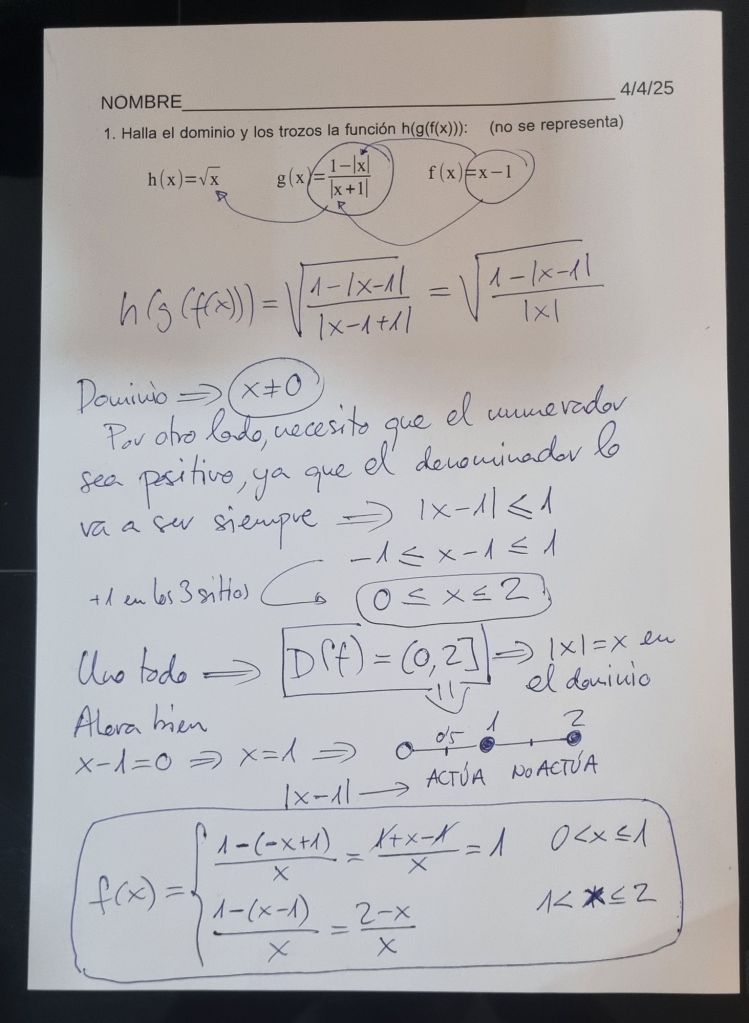 NOMBRE 4/4/25
1. Halla el dominio y los trozos la función h(g(f(x))): (no se representa)
h(x)=√x g(x)=(1-|x|)/|x+1| f(x)=x-1
h(g(f(x))) = √((1-|x-1|)/|x-1+1|) = √((1-|x-1|)/|x|)
Dominio ⇒ x≠0
Por otro lado, necesito que el numerador
sea positivo, ya que el denominador lo
va a ser siempre ⇒ |x-1| ≤ 1
-1 ≤ x-1 ≤ 1
+1 en los 3 sitios 0 ≤ x ≤ 2
Uno todo ⇒ D(f) = (0,2] ⇒ |x|=x en
el dominio
Ahora bien
x-1=0 ⇒ x=1 ⇒ 0'5 1 2
|x-1| → ACTÚA NO ACTÚA
f(x) = { (1-(-x+1))/x = (1+x-1)/x = 1 0<x≤1
(1-(x-1))/x = (2-x)/x 1<x≤2